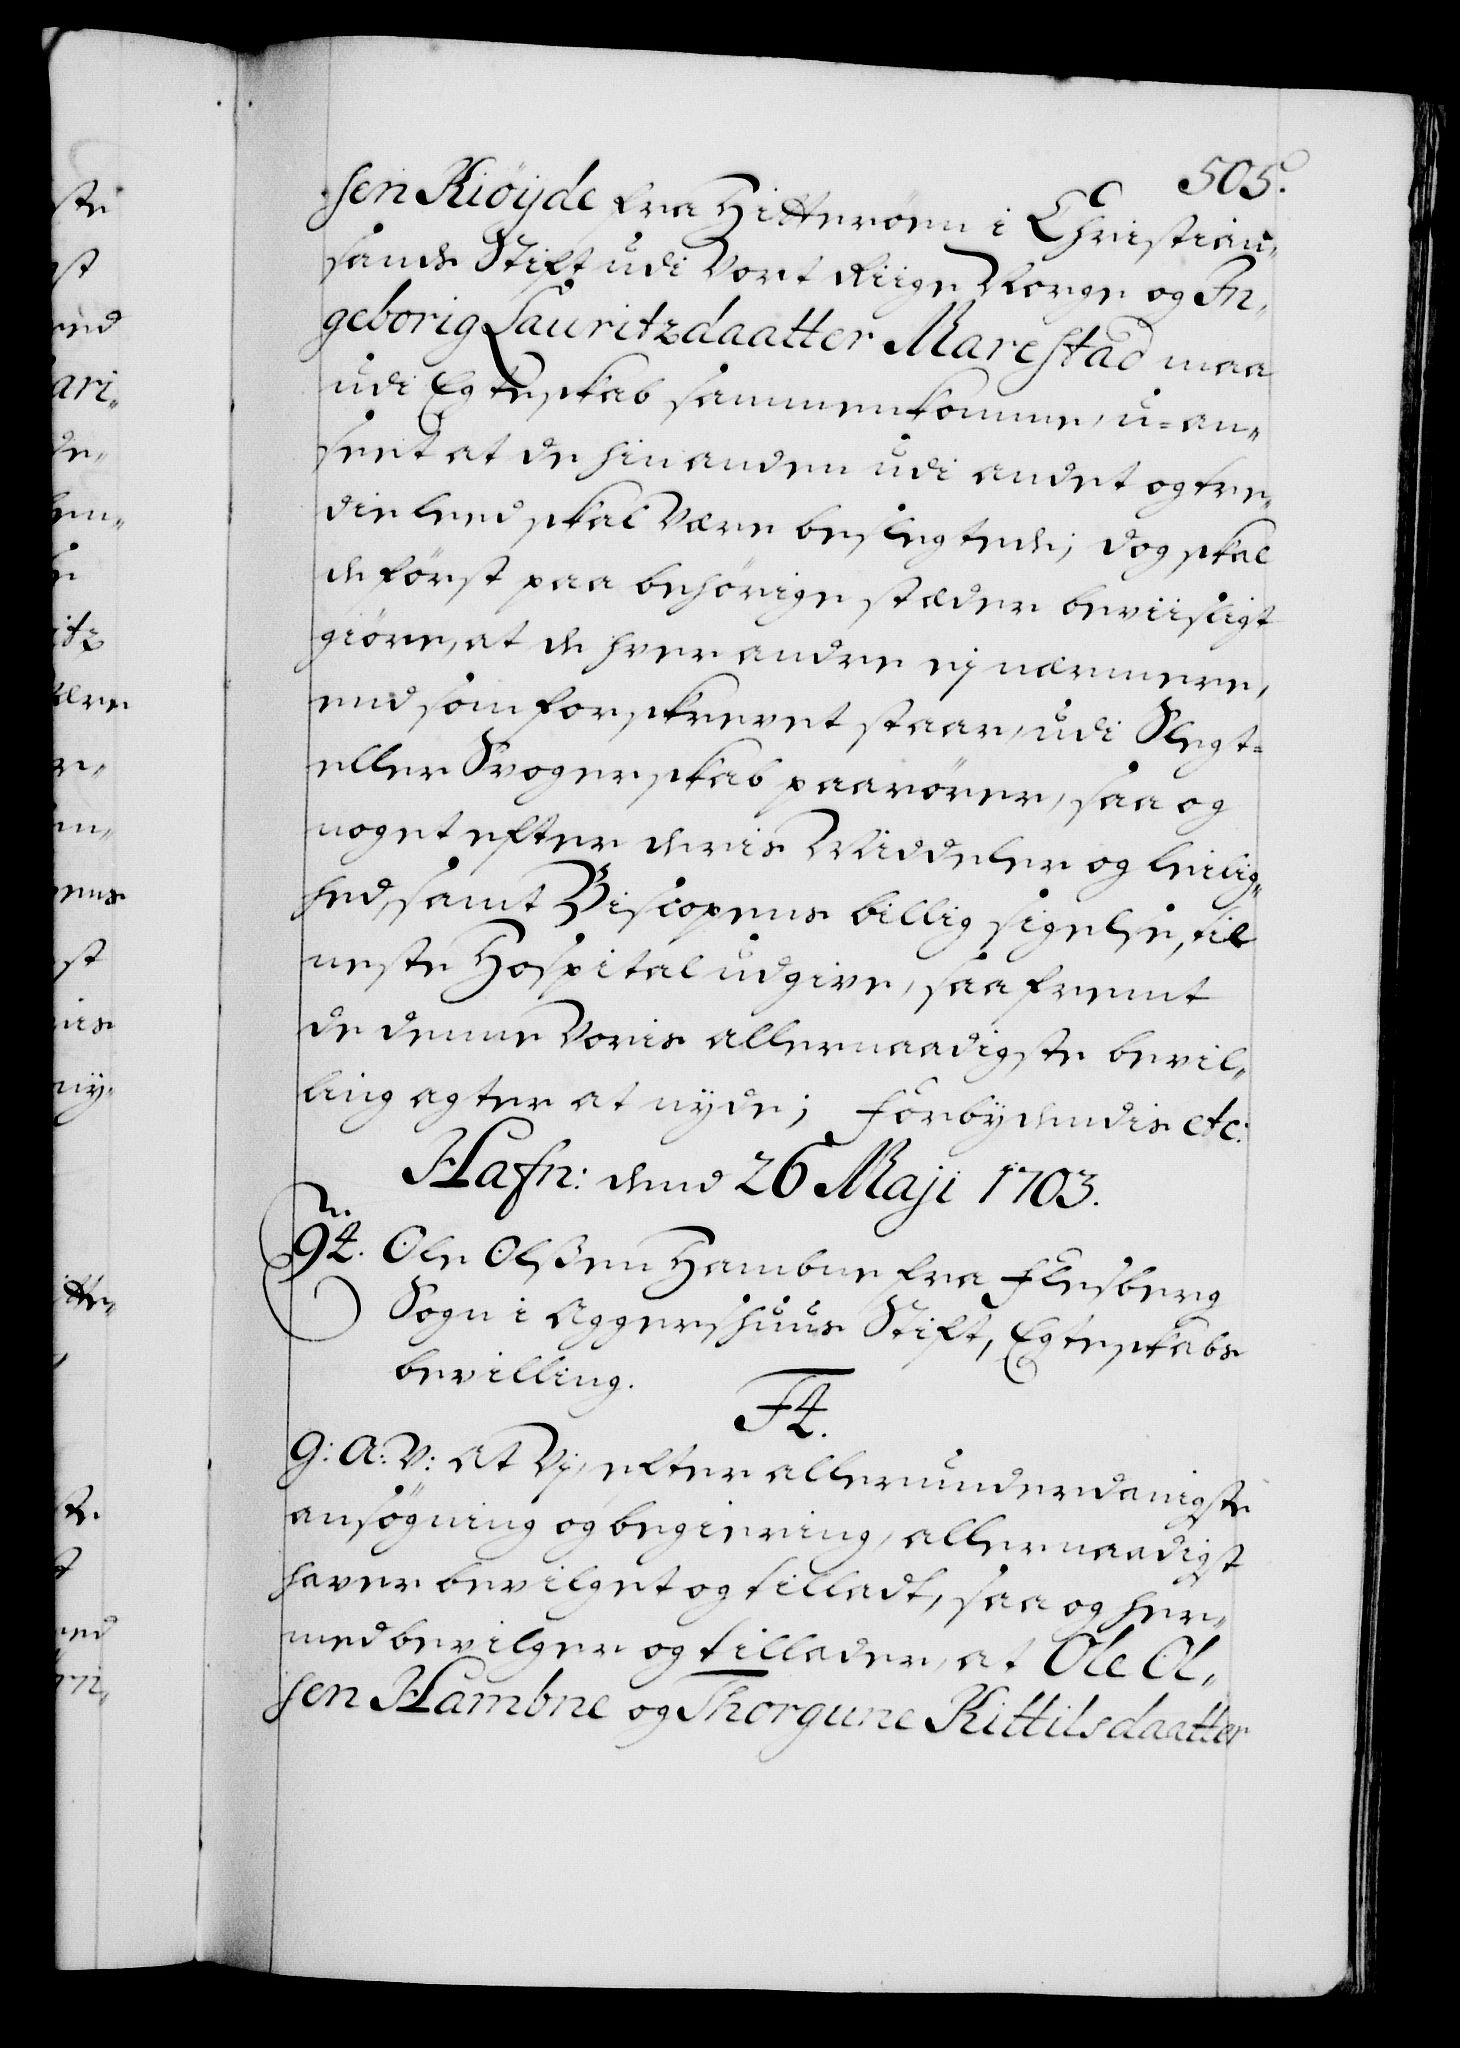 505.
sen Kiöÿde fra Hitterøen i Christian-
sands Stift udi Vort Riige Norge og In-
geborig Lauritzdaatter Marestad maa
udi Egteskab sammenkomme, u=an-
seet at de hinanden udi andet og tre-
die Leed skal være beslegtede; dog skal
de först paa behörige stæder beviisligt
giöre, at de hver andre ej nærmere,
end som forskrevet staar, udi Slegt=
eller Svogerskab paarörer, saa og
noget efter deris Middeler og leilig-
hed, samt Biscopens billig sigelse, til
neste Hospital udgive, saa fremt
de denne Voris allernaadigste bevil-
ling agter at nyde; Forbydendis etc:
Hafn: dend 26 Maji 1703.
92. Ole Olßen Hambne fra Flesberg
Sogn i Aggershuus Stift, Egteskabs
bevilling.
F4.
G: A: V: At Vj, efter allerunderdanigste
ansögning og begiering, allernaadigst
haver bevilget og tilladt, saa og her-
med bevilger og tillader, at Ole Ol-
sen Hambne og Thorgune Kittilsdaatter
ste
st
ari-
de-
itz
ære
ens
st
ny-
itte-